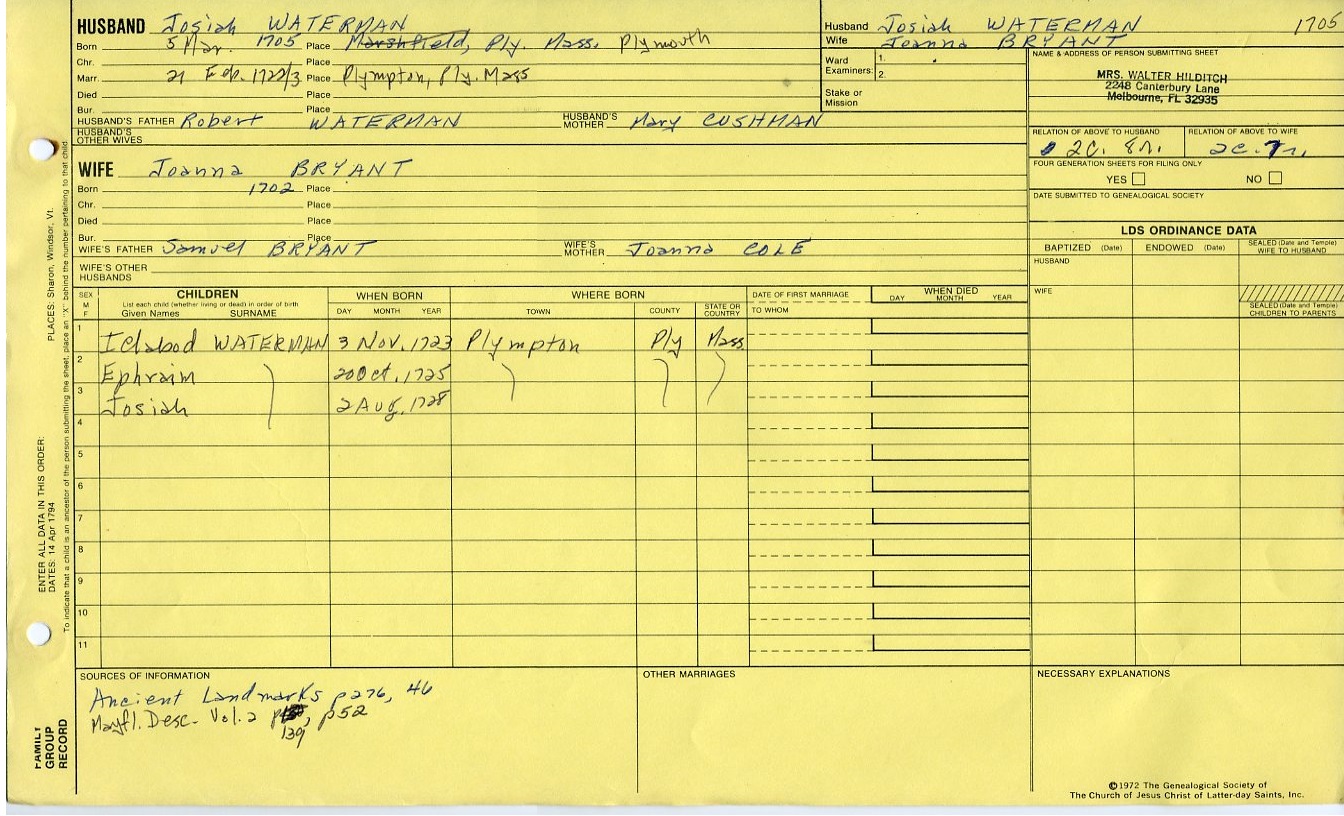 HUSBAND Josiah WATERMAN
Born 5 Mar. 1705 Place Marshfield, Ply. Mass. Plymouth
Chr. Place
Marr. 21 Feb. 1722/3 Place Plympton, Ply. Mass
Died Place
Bur. Place
HUSBAND'S FATHER Robert WATERMAN HUSBAND'S MOTHER Mary CUSHMAN
HUSBAND'S OTHER WIVES
Husband Josiah WATERMAN 1705
Wife Joanna BRYANT
Ward Examiners: 1.
2.
Stake or Mission
NAME & ADDRESS OF PERSON SUBMITTING SHEET
MRS. WALTER HILDITCH
2248 Canterbury Lane
Melbourne, FL 32935
RELATION OF ABOVE TO HUSBAND RELATION OF ABOVE TO WIFE
2c. 8r. 2c. 7r.
FOUR GENERATION SHEETS FOR FILING ONLY
YES NO
DATE SUBMITTED TO GENEALOGICAL SOCIETY
WIFE Joanna BRYANT
Born 1702 Place
Chr. Place
Died Place
Bur. Place
WIFE'S FATHER Samuel BRYANT WIFE'S MOTHER Joanna COLE
WIFE'S OTHER HUSBANDS
LDS ORDINANCE DATA
BAPTIZED (Date) ENDOWED (Date) SEALED (Date and Temple) WIFE TO HUSBAND
HUSBAND
WIFE
SEALED (Date and Temple) CHILDREN TO PARENTS
SEX M F CHILDREN WHEN BORN WHERE BORN DATE OF FIRST MARRIAGE WHEN DIED
List each child (whether living or dead) in order of birth
Given Names SURNAME DAY MONTH YEAR TOWN COUNTY STATE OR COUNTRY TO WHOM DAY MONTH YEAR
1 Ichabod WATERMAN 3 Nov. 1723 Plympton Ply Mass
2 Ephraim 20 Oct. 1725
3 Josiah 2 Aug. 1728
4
5
6
7
8
9
10
11
SOURCES OF INFORMATION
Ancient Landmarks p276, 46
Mayfl. Desc. Vol. 2 p , p52
139
OTHER MARRIAGES
NECESSARY EXPLANATIONS
©1972 The Genealogical Society of
The Church of Jesus Christ of Latter-day Saints, Inc.
PLACES: Sharon, Windsor, Vt.
ENTER ALL DATA IN THIS ORDER:
DATES: 14 Apr 1794
To indicate that a child is an ancestor of the person submitting the sheet, place an "X" behind the number pertaining to that child.
FAMILY
GROUP
RECORD